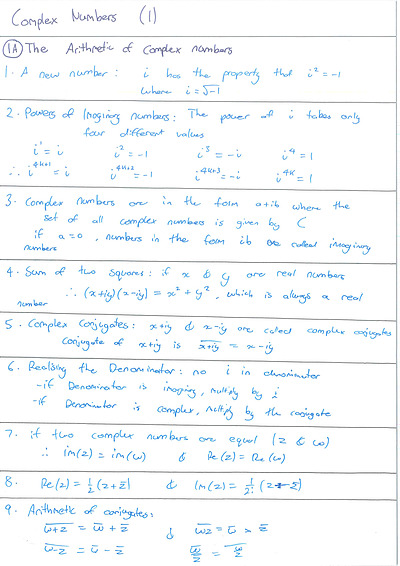 Complex Numbers (1)
1A The Arithmetic of Complex numbers
1. A new number: i has the property that i² = -1
where i = √-1
2. Powers of Imaginary numbers: The power of i takes only
four different values
i¹ = i i² = -1 i³ = -i i⁴ = 1
∴ i⁴ᵏ⁺¹ = i i⁴ᵏ⁺² = -1 i⁴ᵏ⁺³ = -i i⁴ᵏ = 1
3. Complex numbers are in the form a+ib where the
set of all complex numbers is given by C
if a=0, numbers in the form ib are called imaginary
numbers
4. Sum of two squares: if x & y are real numbers
∴ (x+iy)(x-iy) = x² + y², which is always a real
number
5. Complex Conjugates: x+iy & x-iy are called complex conjugates
Conjugate of x+iy is x̅+̅i̅y̅ = x-iy
6. Realising the Denominator: no i in denominator
-if Denominator is imaginary, multiply by i
-if Denominator is complex, multiply by the conjugate
7. if two complex numbers are equal (z & w)
∴ im(z) = im(w) & Re(z) = Re(w)
8. Re(z) = ½(z+z̅) & Im(z) = 1/2i (z-z̅)
9. Arithmetic of conjugates:
w̅+̅z̅ = w̅ + z̅ & w̅z̅ = w̅ × z̅
w̅-̅z̅ = w̅ - z̅ w̅/z̅ = w̅/̅z̅